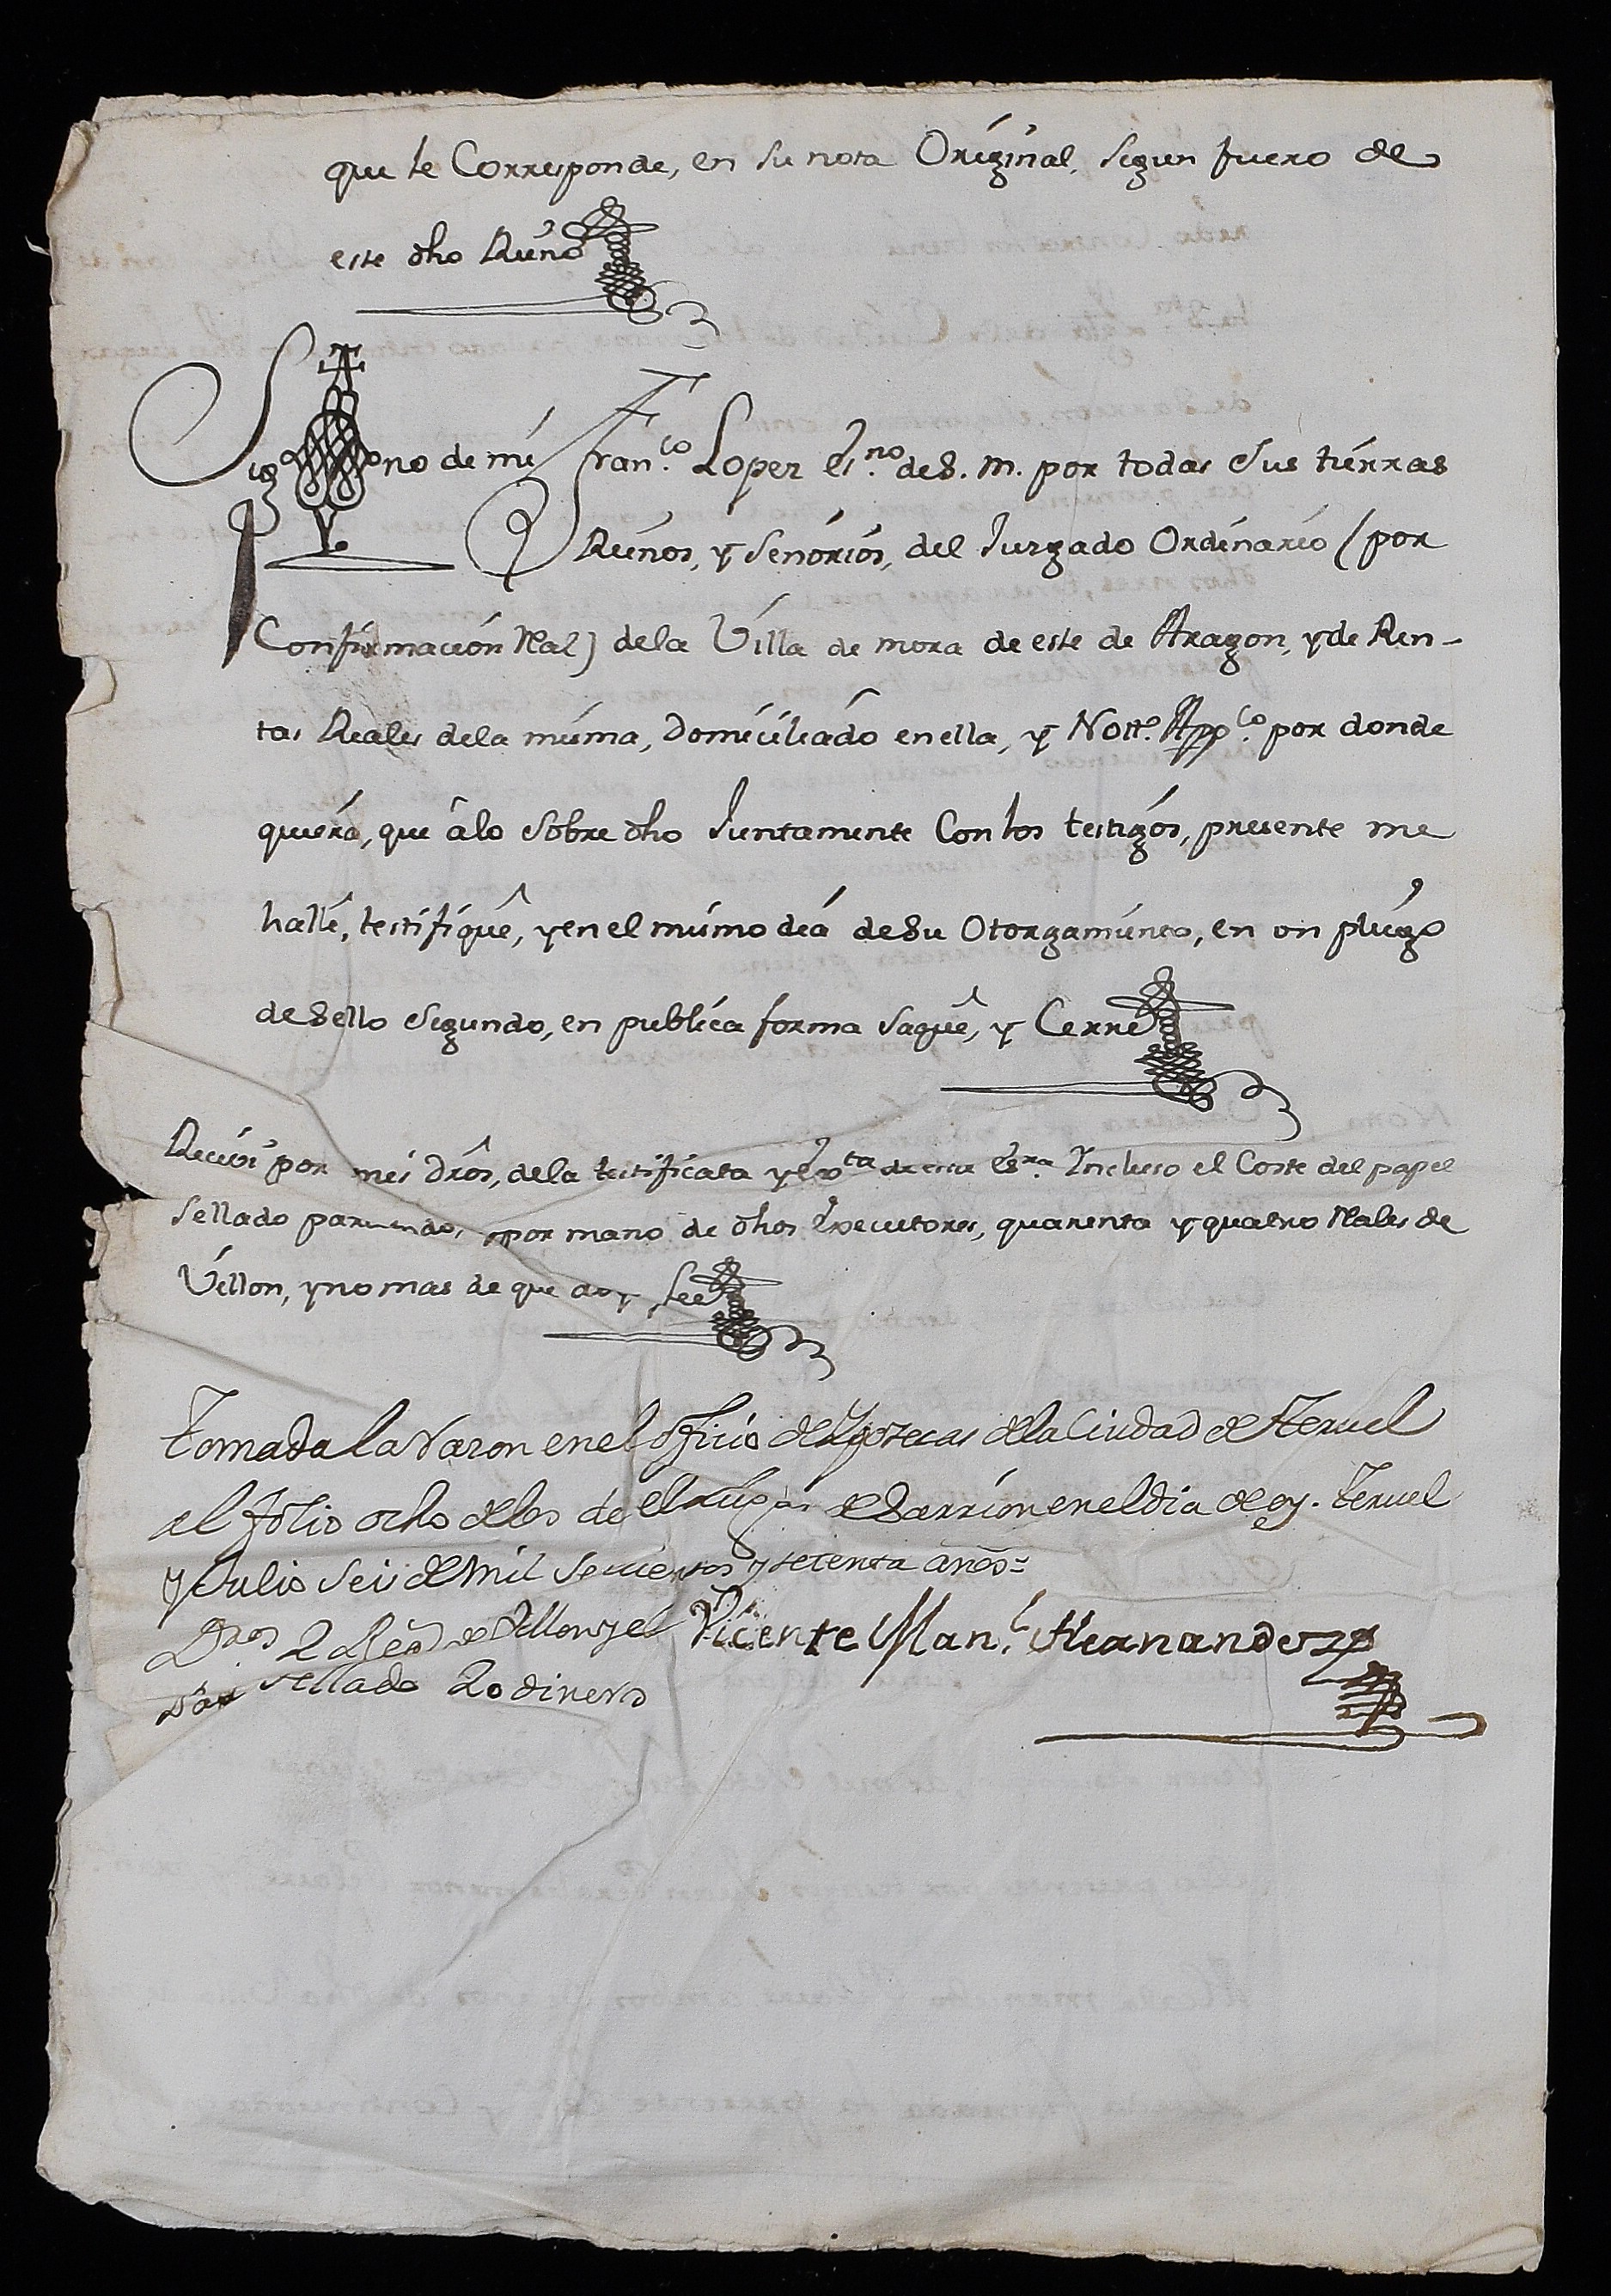 que le Corresponde, en su nota Original, segun fuero de
este dho Reino
Sig no de mi Fran.co Lopez es.no de S. M. por todas sus tierras
Reinos, y Señorios, del Jurzgado Ordinario (por
Confirmacion Real) dela Villa de mora de este de Aragon, y de Ren-
tas Reales dela misma, Domiciliado en ella, y Nott.o App.co por donde
quiera, que à lo sobre dho Juntamente Con los testigos, presente me
hallé, testifiquê, y en el mismo dia de su Otorgamiento, en on pliego
de Sello Segundo, en publica forma saquê, y Cerré
Recivi por mis Drôs, dela testificata y de esta es.ra Incluso el Coste del papel
Sellado por mano de dhos Executores, quarenta y quatro Reales de
Vellon, y no mas de que doy fee
Tomada la razon en el Oficio de Ypotecas dela Ciudad de Teruel
al folio ocho de los de el Lugar de Sarrion en el dia de oy. Teruel
y Julio seis de mil setecientos y setenta años=
Dros 2 R.s de Vellon y el Vicente Man.l Hernandez
sellado 20 dineros